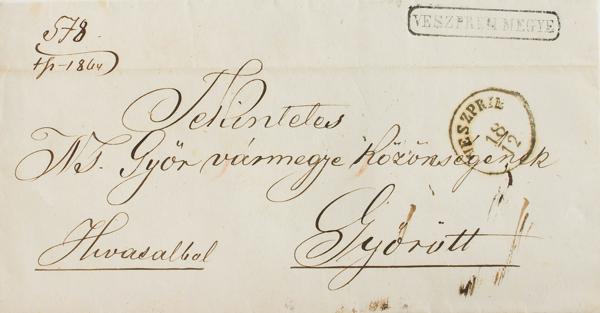 578.
VESZPREM MEGYE
VESZPRIM
18/12
Tekintetes
NS. Győr vármegye Közönségének
Hivasalbol
Győrött